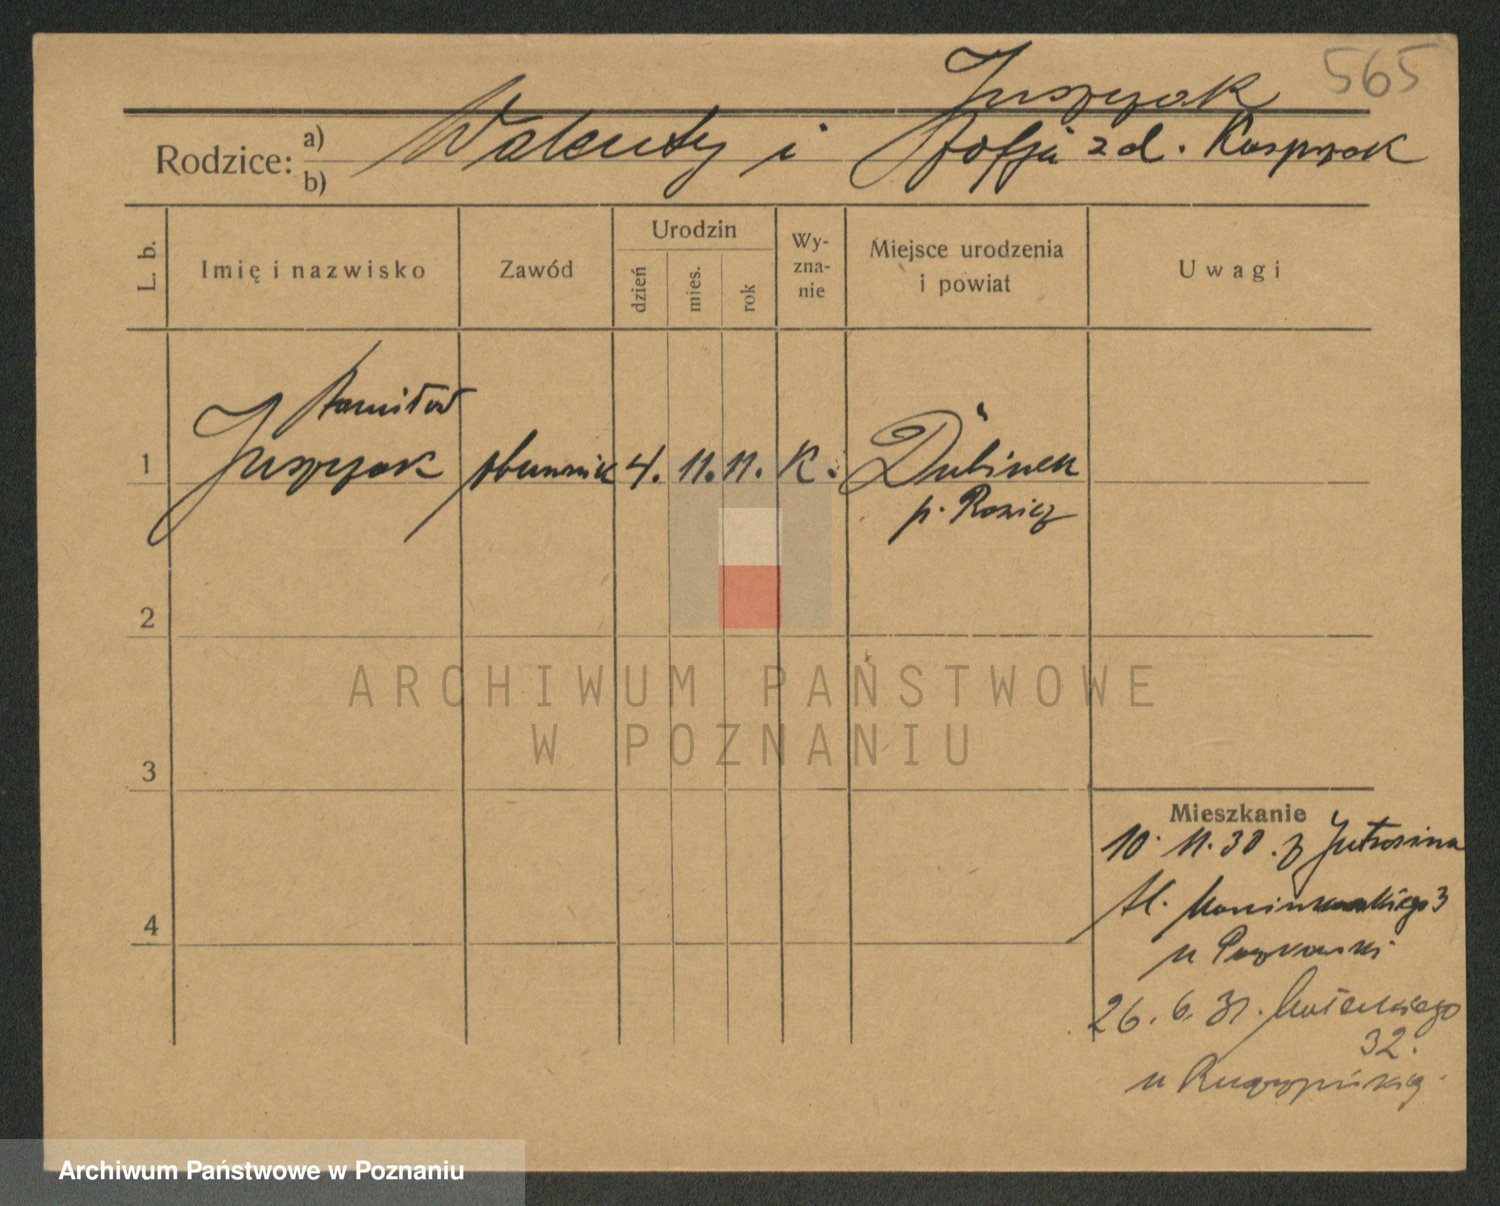 565
Juszczak
Rodzice: a) b) Walenty i Zofja z d. Kasprzak
L. b.
Imię i nazwisko
Zawód
Urodzin
dzień
mies.
rok
Wy-
zna-
nie
Miejsce urodzenia
i powiat
Uwagi
Stanisław
1 Juszczak 4. 11. 11. K. Dubinek
p. Rawicz
2
3
4
Mieszkanie
10. 11. 30. z Jutrosina
26. 6. 31. Małeckiego
32.
u
ARCHIWUM PAŃSTWOWE
W POZNANIU
Archiwum Państwowe w Poznaniu